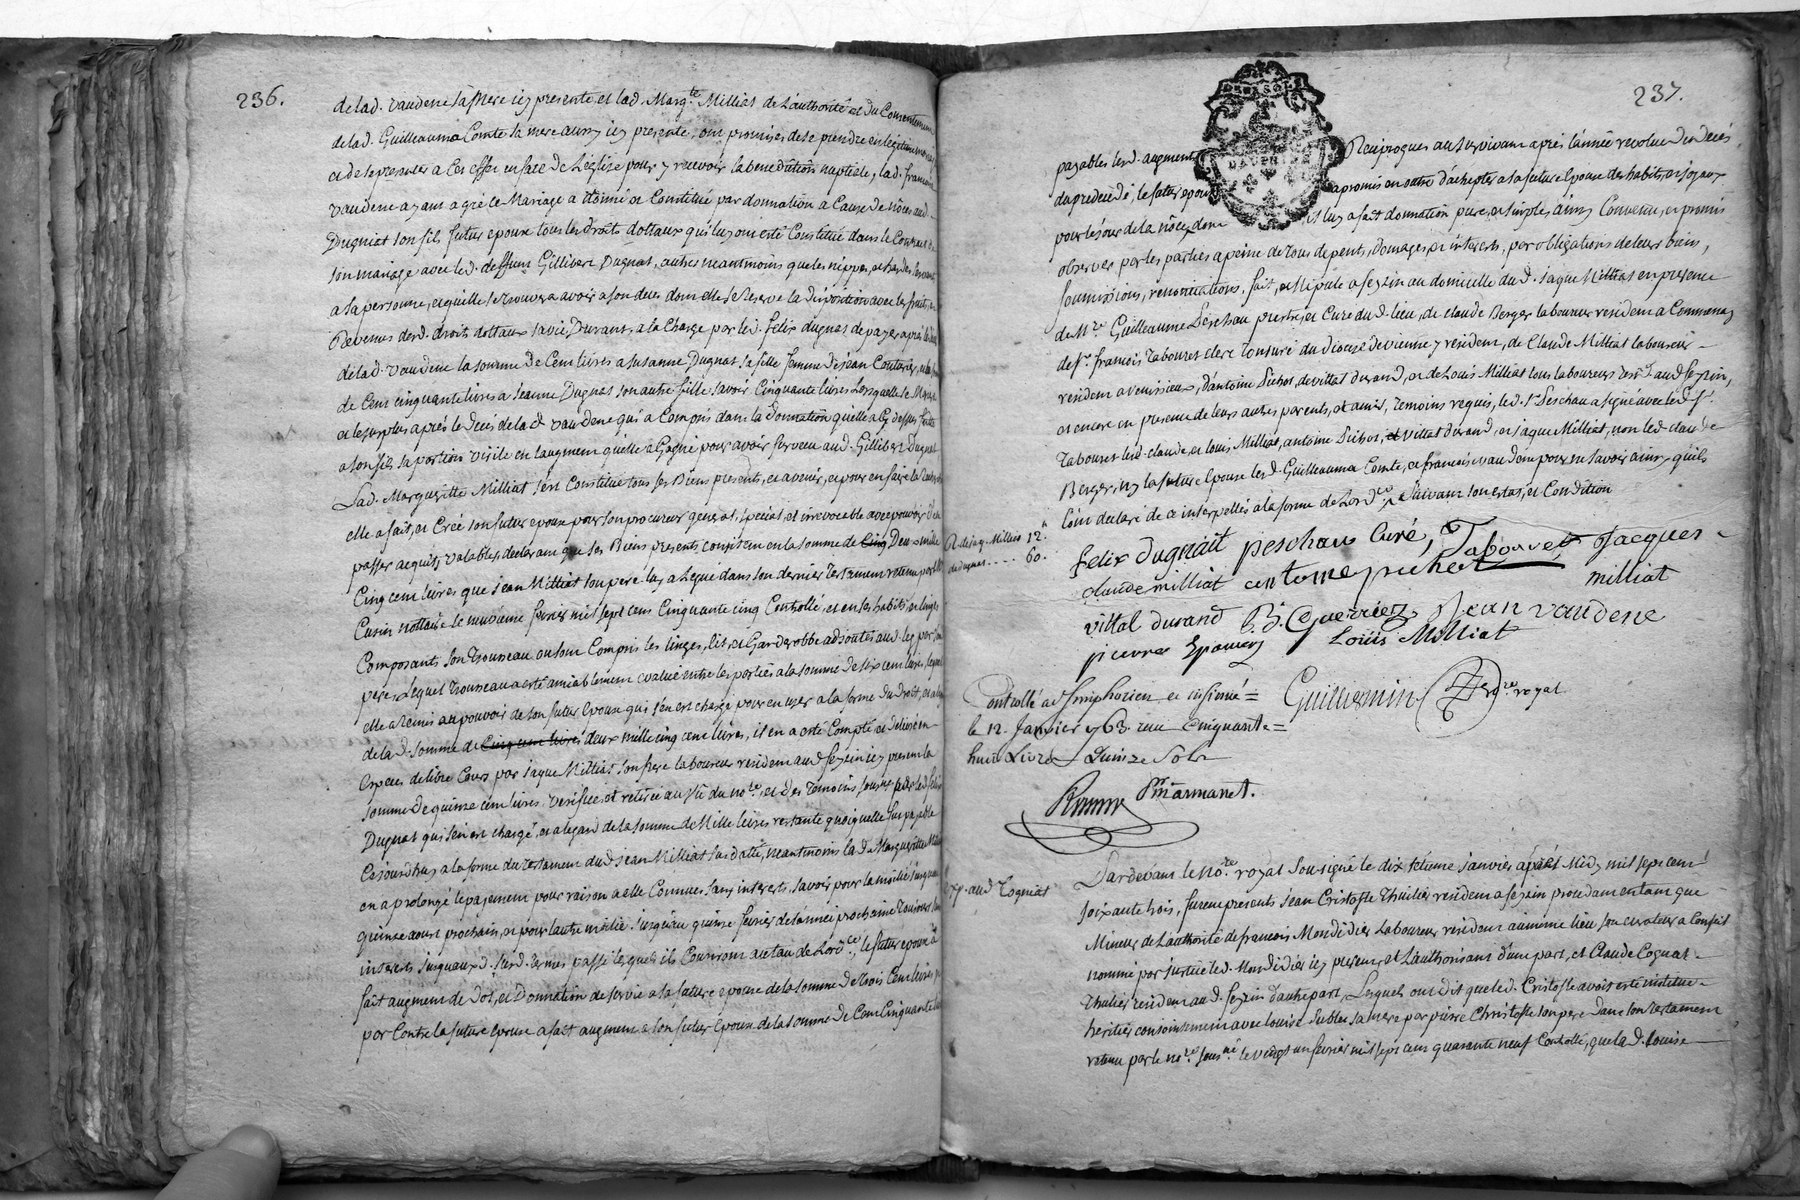 236.
de lad. vaudene sa Mere icy presente et lad. Margte Milliat de L'authorité et du Consentement
de lad. Guilleauma Comte sa mere aussy icy presente, ont promis de se prendre en legitime mariage
et de se presenter a Cet effet en face de L'eglise pour y recevoir la benediction nuptiele, lad. francoise
vaudene ayant agréé ce Mariage a donné et Constitué par donnation a Cause de nôces aud.
Dugniat son fils futur epoux tous les droits dottaux qui luy ont esté Constitué dans le Contract de
son mariage avec led. deffunt Gillibert Dugnat, autres neantmoins que les nippes, et hardes servant
a sa personne, et qu'elle se trouvera avoir a son deces dont elle se Reserve la disposition avec les fruits, et
Revenus desd. droits dottaux sa vie Durant, a la Charge par led. felix dugnat de payer après le décès
de lad. vaudene la somme de Cent livres a susanne Dugnat sa fille femme de jean
de Cent cinquante livres a jeanne Dugnat son autre fille savoir Cinquante livres Lorsquelle se
et le surplus après le Decés de la d. vaudene qui a Compris dans la Donnation qu'elle a Cy dessus faitte
a son fils sa portion virile en l'augment qu'elle a Gagné pour avoir survecu aud. Gillibert Dugnat
Lad. Margueritte Milliat s'est Constitué tous ses Biens presents, et avenir, et pour en faire la
elle a fait, et Créé son futur epoux pour son procureur general, special, et irrevocable avec pouvoir d'en
passer acquits valables, declarant que ses Biens presents consistent en la somme de Cinq Deux mille
Cinq cent livres que jean Milliat son pere luy a Legué dans son dernier Testament retenu par Me
Cusin nottaire le neuvieme fevrier mil sept cent Cinquante cinq Controllé, et en ses habits, et linges
Composants son Trousseau ou sont Compris les linges, lit, et Garderobbe adjoutés aud. legs par son
pere, Lequel Trousseau a esté amiablement evalué entre les parties a la somme de six cent livres, lequel
elle a Remis au pouvoir de son futur Epoux qui s'en est chargé pour en user a la forme du Droit, et a l'egard
de la d. somme de Cinq cent livres deux mille cinq cent livres, il en a esté Compté et delivré en
Especes de libre Cours par jaque Milliat son frere laboureur resident aud. sezein icy present la
somme de quinze cent livres verifiée et retirée au vû du nore, et des Temoins sousnés par led. felix
Dugnat qui s'en est chargé, et a legard de la somme de Mille livres restante quoiquelle fut payable
Cejourdhuy a la forme du testament dud. jean Milliat sus datté, neantmoins la d. Marguerite Milliat
en a prolongé le payement pour raison a elle Connues sans interests, savoir pour la moitié jusquau
quinze aoust prochain, et pour l'autre moitié jusquau quinze fevrier de lannée prochaine Toujours sans
interests jusquaux d. susd. termes passé lesquels ils Courront au taux de Lordce, le futur epoux a
fait augment de Dot, et Donnation de survie a sa future epouse de la somme de Trois Cent livres, et
par Contre la future Epouse a fait augment a son futur Epoux de la somme de Cent Cinquante livres
237.
payables lesd. augments Reciproques au survivant après l'année revolue du decés
du predecedé, le futur epoux a promis en outre d'achepter a sa future Epouse des habits, et joyaux
pour le jour de la nôce, dont il luy a fait donnation pure, et simple, ainsy Convenu, et promis
observer par les parties a peine de tous depents, domages, et interests, par obligations de leurs biens,
soumissions, renontiations, fait, et stipulé a sezein au domicille du d. jaque Milliat en presence
de Mre Guilleaume Peschau prestre, et Curé du d. lieu, de claude Berger laboureur resident a Communay
de Sr. francois Tabouret clerc tonsuré du diocese de vienne y resident, de Claude Milliat laboureur
resident a venissieux, d'antoine Pichot, de vittal durand, et de Louis Milliat tous laboureurs resids. aud. sezein,
et encore en presence de leurs autres parents, et amis, temoins requis, led. sr. Peschau a signé avec led. sr.
Tabouret lesd. claude, et louis Milliat, antoine Pichot, et vittal durand, et jaque Milliat, non led. claude
Berger, ny la future Epouse les d. Guilleauma Comte, et francoise vaudene pour ne savoir ainsy qu'ils
l'ont declaré de ce interpellés a la forme de Lordce suivant son estat, et Condition
R. de jaq. Milliat 12.
de dugnat ..... 60.
felix dugnait peschau Curé, Tabouret Jacques
claude milliat antoine pichot milliat
vittal durand Guerrier Jean vaudene
pierre Louis Milliat
Controllé a St Simphorien et insinué =
Guillermin nore royal
le 12. Janvier 1763. reçu Cinquante =
huit Livres Quinze Sols
Pr marmanet.
Exp. aud. Cogniat
Pardevant le nore. royal sousigné le dix setieme janvier après Midy mil sept cent
soixante trois, furent presents jean Cristofle Thuilier resident a sezein procedant en tant que
Mineur de L'authorité de francois Mondidier Laboureur resident au même lieu son curateur a Conseil
nommé par justice led. Mondidier icy present, et L'authorisant d'une part, et Claude Cognat
Thulier resident au d. sezein d'autre part, Lesquels ont dit que led. Cristofle avoit esté institué
heritier conjointement avec louise sa Mere par pierre Christofle son pere Dans son testament
retenu par le nore. sousné le vingt un fevrier mil sept cent quarante neuf Controllé, que la d. Louise